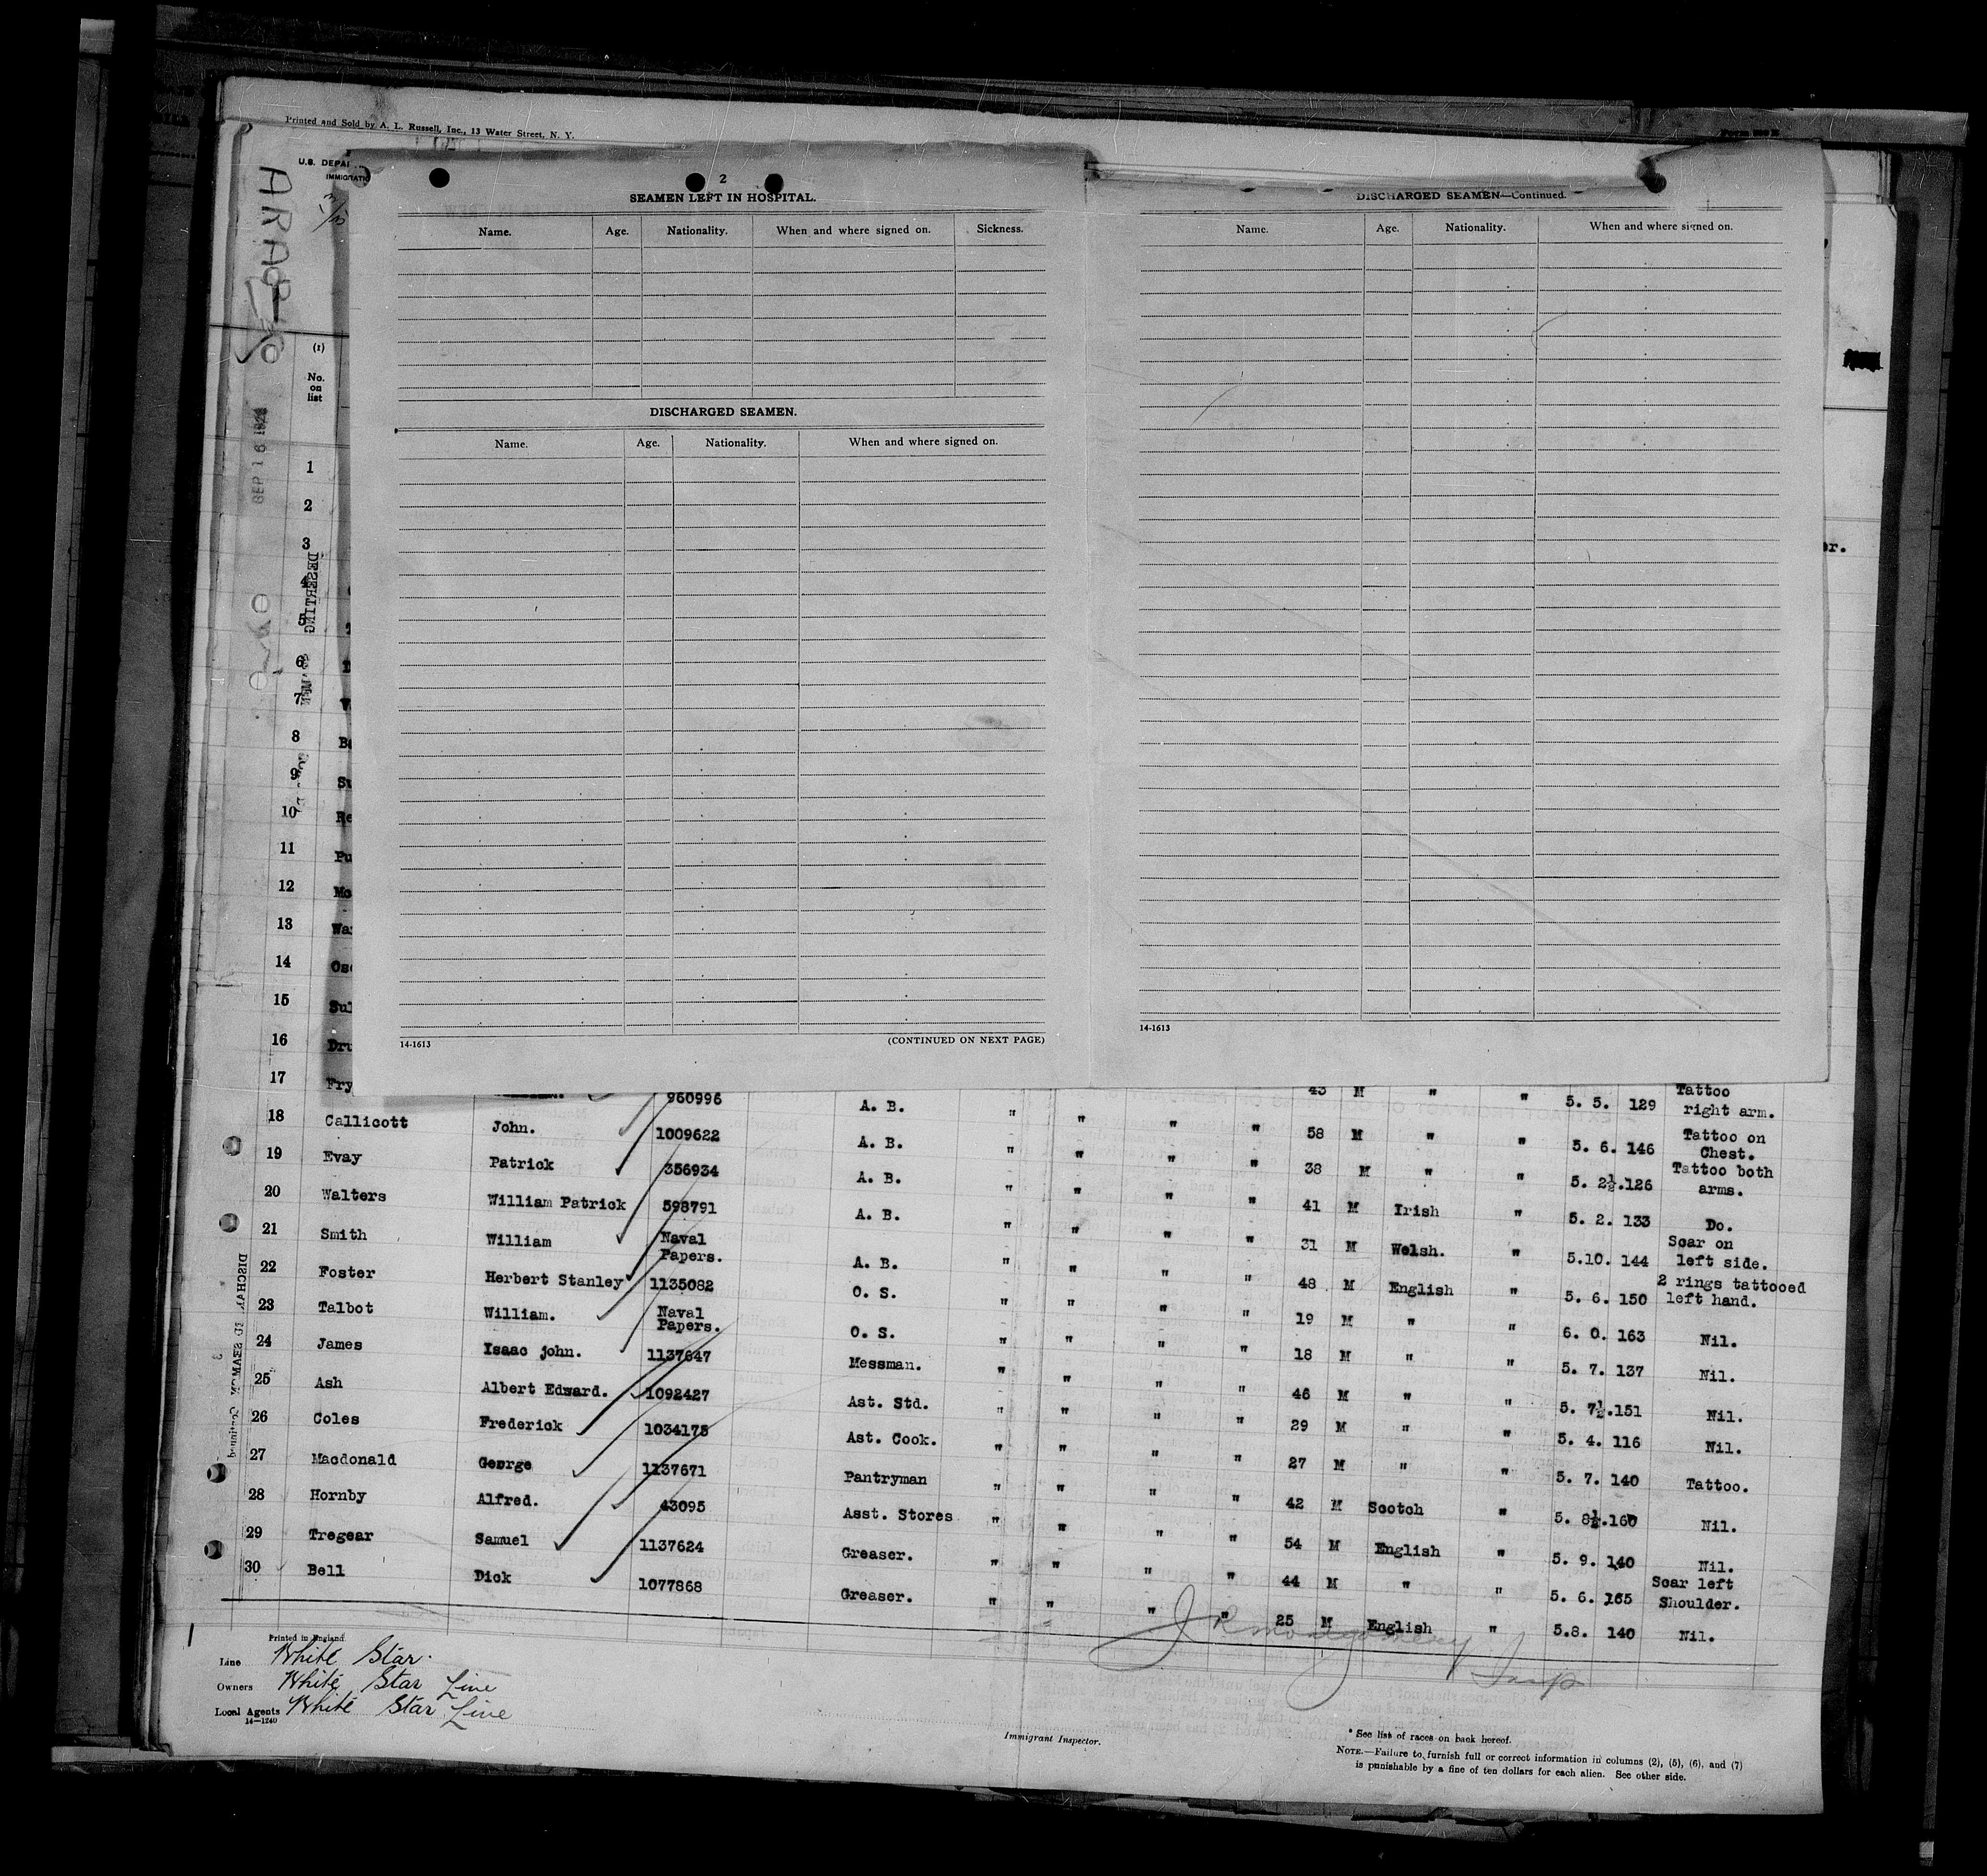 Printed and Sold by A. L. Russell, Inc., 13 Water Street, N. Y.
U.S. DEPA
IMMIGRATIO
ARABIC
SEP 16 1924
(1)
No.
on
list
2
SEAMEN LEFT IN HOSPITAL.
Name. Age. Nationality. When and where signed on. Sickness.
DISCHARGED SEAMEN.
Name. Age. Nationality. When and where signed on.
14-1613 (CONTINUED ON NEXT PAGE)
DISCHARGED SEAMEN—Continued.
Name. Age. Nationality. When and where signed on.
14-1613
er.
DESERTING
1
2
3
4
5
6
7
8 Ba
9 Su
10 Re
11 Pu
12 Mo
13 Wa
14 Os
15 Sul
16 Dru 43 M " " 5. 5. 129 Tattoo right arm.
17 Fry 960996 A. B. " " " " 58 M " " 5. 6. 146 Tattoo on Chest.
18 Callicott John. 1009622 A. B. " " " " 38 M " " 5. 2½.126 Tattoo both arms.
19 Evay Patrick 356934 A. B. " " " " 41 M Irish " 5. 2. 133 Do.
20 Walters William Patrick 598791 A. B. " " " " 31 M Welsh. " 5.10. 144 Scar on left side.
21 Smith William Naval Papers. A. B. " " " " 48 M English " 5. 6. 150 2 rings tattooed left hand.
22 Foster Herbert Stanley 1135082 O. S. " " " " 19 M " " 6. 0. 163 Nil.
23 Talbot William. Naval Papers. O. S. " " " " 18 M " " 5. 7. 137 Nil.
24 James Isaac john. 1137647 Messman. " " " " 46 M " " 5. 7½.151 Nil.
25 Ash Albert Edward. 1092427 Ast. Std. " " " " 29 M " " 5. 4. 116 Nil.
26 Coles Frederick 1034175 Ast. Cook. " " " " 27 M " " 5. 7. 140 Tattoo.
27 Macdonald George 1137671 Pantryman " " " " 42 M Scotch " 5. 8½.160 Nil.
28 Hornby Alfred. 43095 Asst. Stores " " " " 54 M English " 5. 9. 140 Nil.
29 Tregear Samuel 1137624 Greaser. " " " " 44 M " " 5. 6. 165 Scar left Shoulder.
30 Bell Dick 1077868 Greaser. " " " " 25 M English " 5.8. 140 Nil.
Printed in England
Line White Star.
Owners White Star Line
Local Agents White Star Line
14—1240
J R Montgomery Insp
Immigrant Inspector.
* See list of races on back hereof.
NOTE.—Failure to furnish full or correct information in columns (2), (5), (6), and (7)
is punishable by a fine of ten dollars for each alien. See other side.